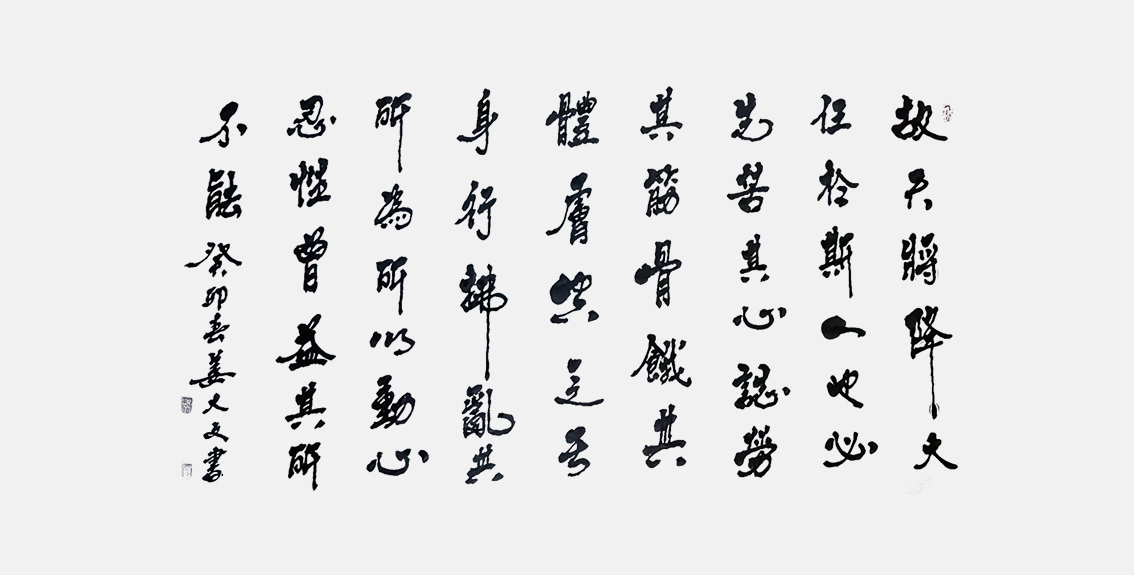 故天將降大
任於斯人也必
先苦其心誌勞
其筋骨餓其
體膚空乏其
身行拂亂其
所為所以動心
忍性曾益其所
不能癸卯春姜大文書